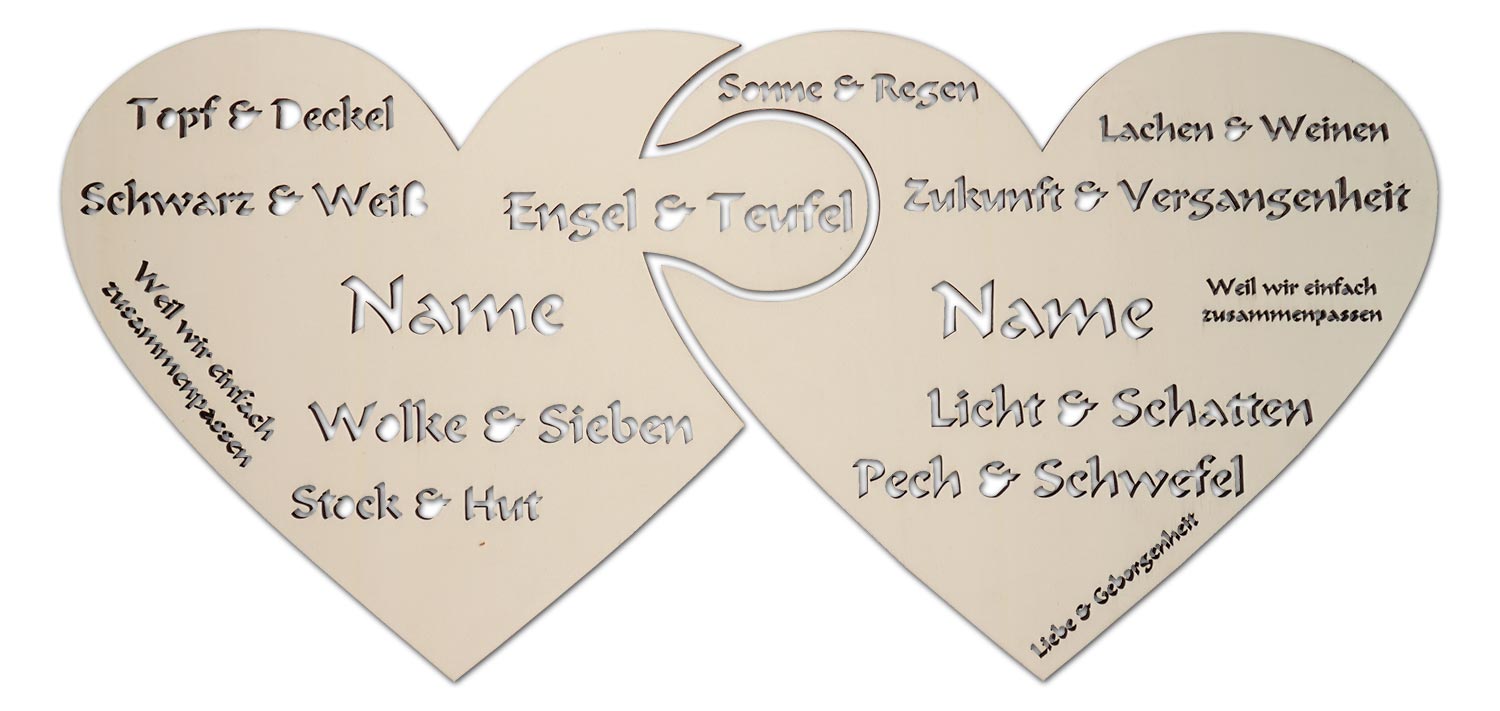 Topf & Deckel
Schwarz & Weiß
Engel & Teufel
Name
Weil wir einfach
zusammenpassen
Wolke & Sieben
Stock & Hut
Sonne & Regen
Lachen & Weinen
Zukunft & Vergangenheit
Name
Weil wir einfach
zusammenpassen
Licht & Schatten
Pech & Schwefel
Liebe & Geborgenheit